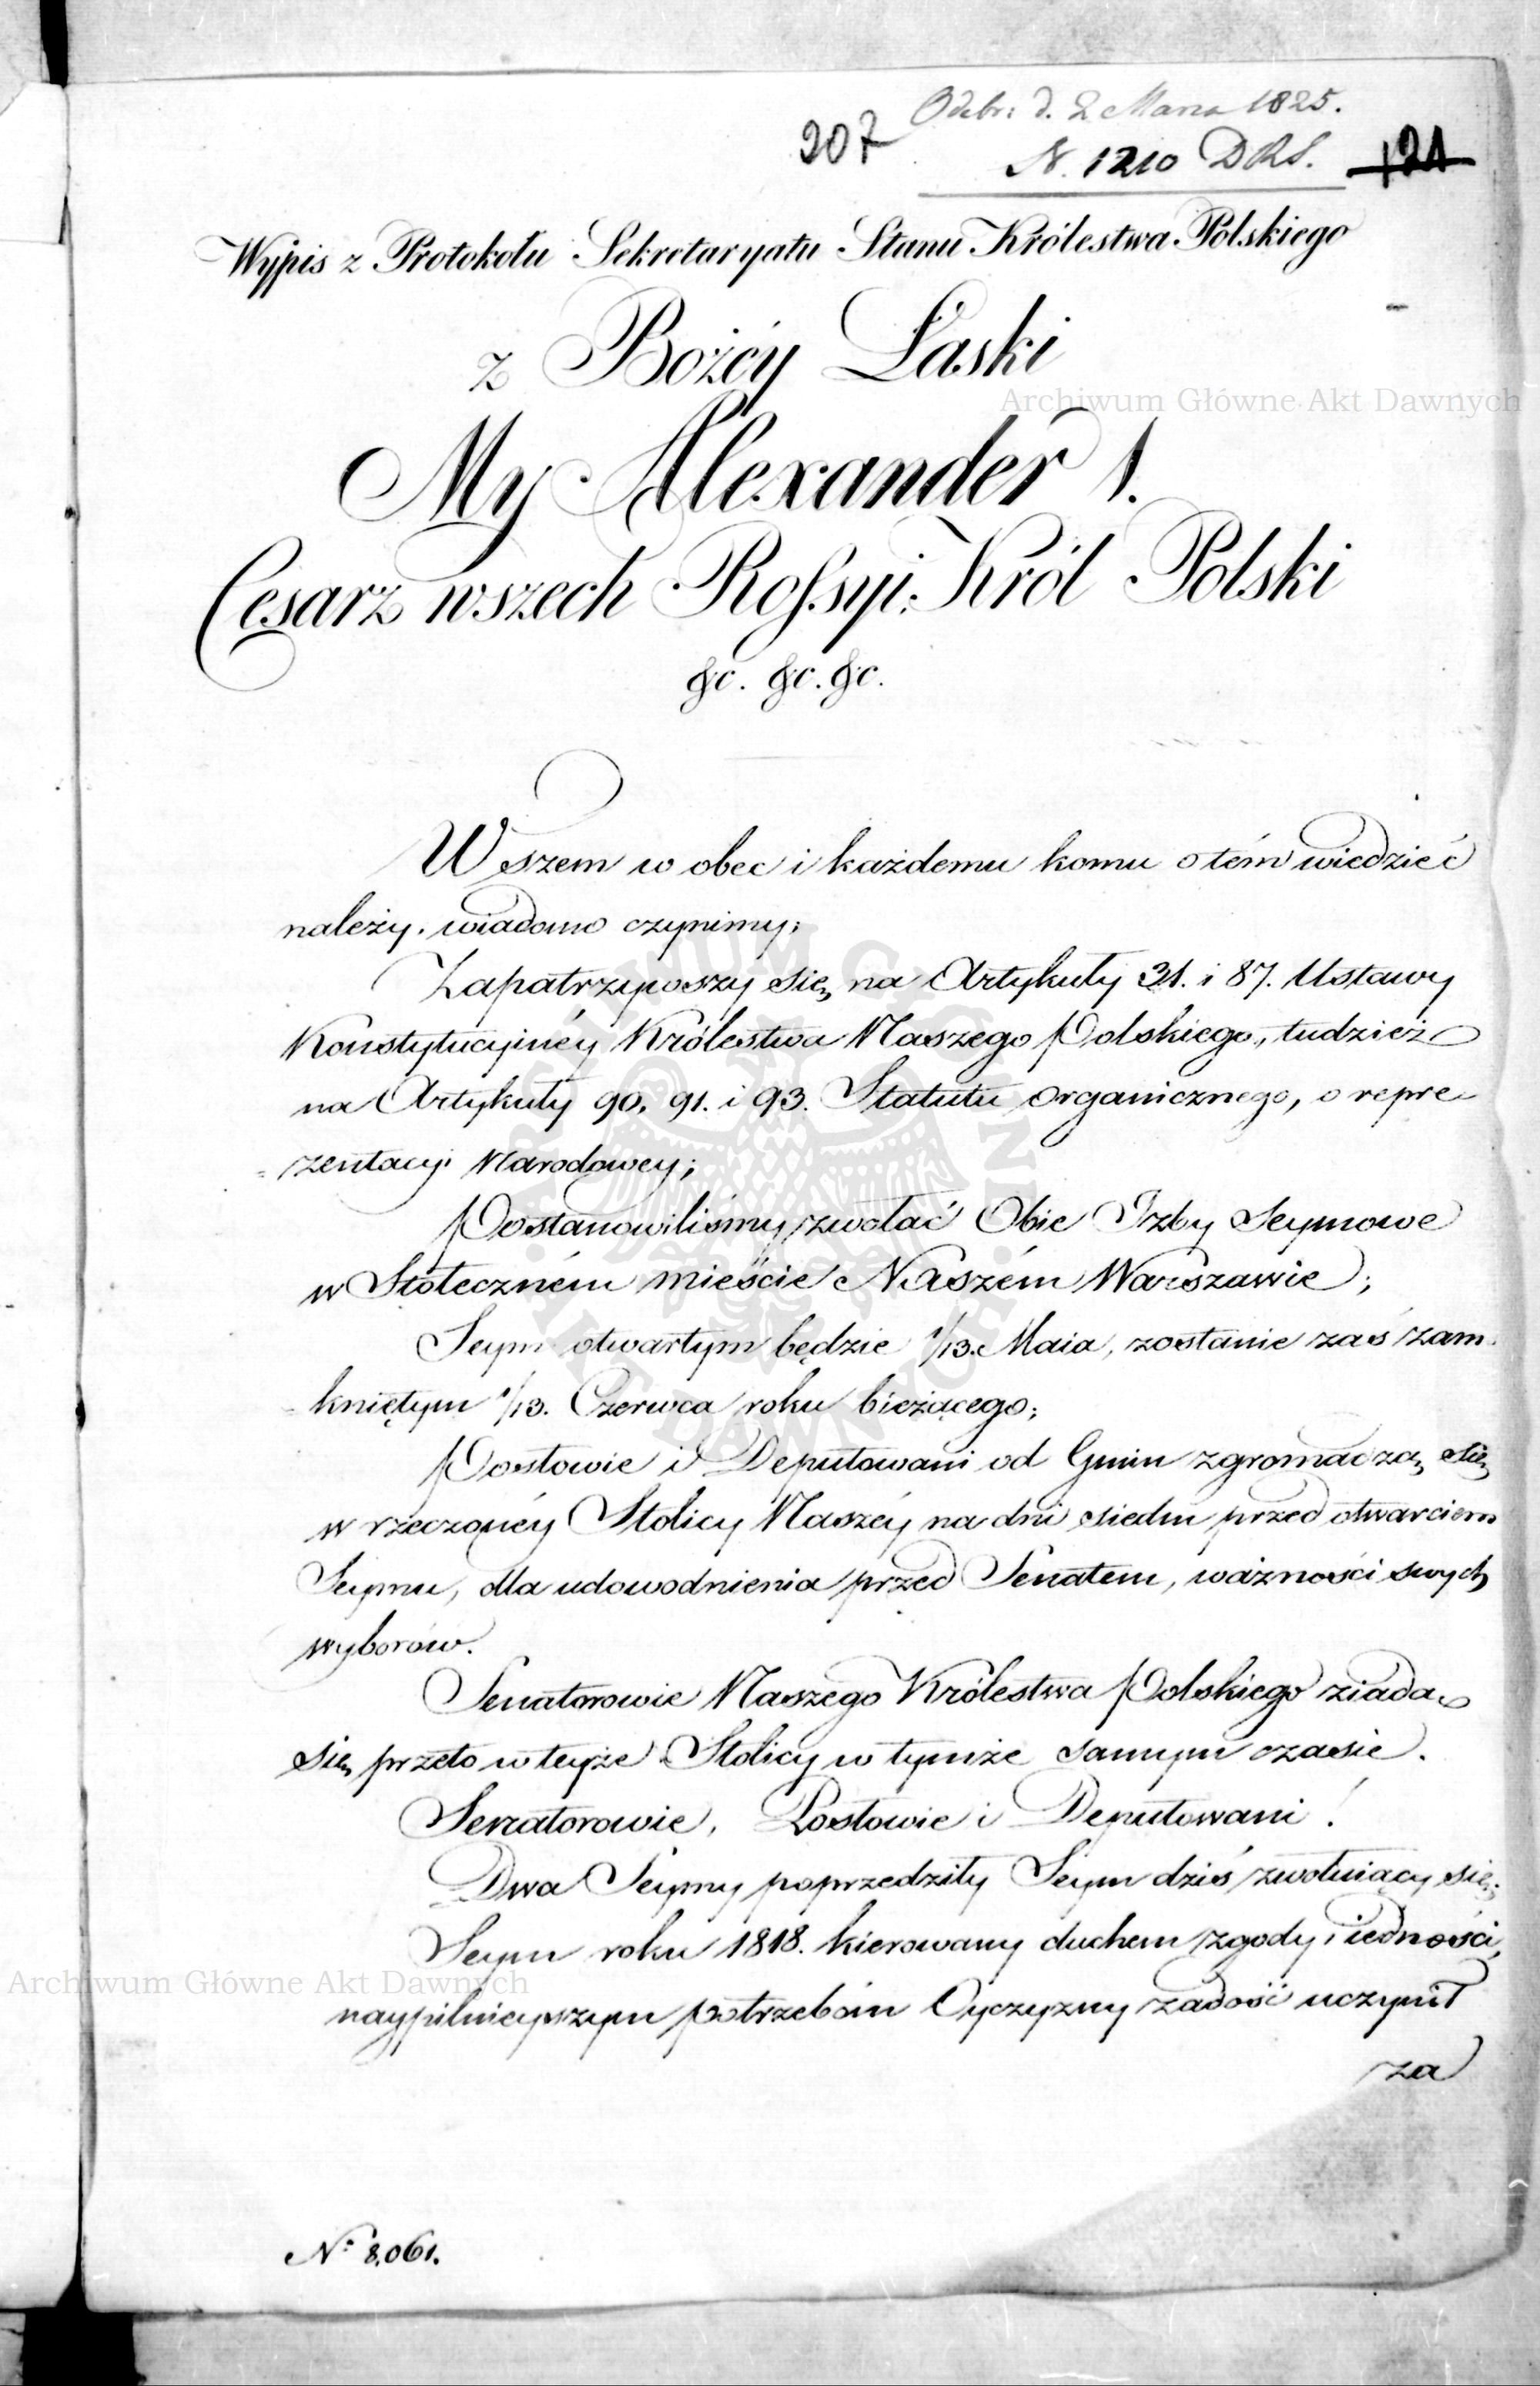 Odebr: d. 2 Marca 1825.
207
N. 1210 DRS. 121
Wypis z Protokołu Sekretaryatu Stanu Królestwa Polskiego
z Bożéy Łaski
Archiwum Główne Akt Dawnych
My Alexander I.
Cesarz wszech Rossyi, Król Polski
&c. &c. &c.
Wszem w obec i każdemu komu o tém wiedzieć
należy, wiadomo czynimy;
Zapatrzywszy się, na Artykuły 31. i 87. Ustawy
Konstytucyinéy Królestwa Naszego Polskiego, tudzież
na Artykuły 90, 91. i 93. Statutu organicznego, o repre
=zentacyi Narodowey;
Postanowiliśmy zwołać Obie Izby Seymowe
w Stołeczném mieście Naszém Warszawie;
Seym otwartym będzie 1/13. Maia, zostanie zaś zam=
=kniętym 1/13. Czerwca roku bieżącego;
Posłowie i Deputowani od Gmin zgromadzą się,
w rzeczonéy Stolicy Naszéy na dni siedm przed otwarciem
Seymu, dla udowodnienia przed Senatem, ważności swych
wyborów.
Senatorowie Naszego Królestwa Polskiego ziadą
się, przeto w teyże Stolicy w tymże samym czasie.
Senatorowie, Posłowie i Deputowani!
Dwa Seymy poprzedziły Seym dziś zwołuiący się;
Seym roku 1818. kierowany duchem zgody i iedności,
Archiwum Główne Akt Dawnych
naypilnieyszym potrzebom Oyczyzny zadość uczynił
za
N° 8,061.